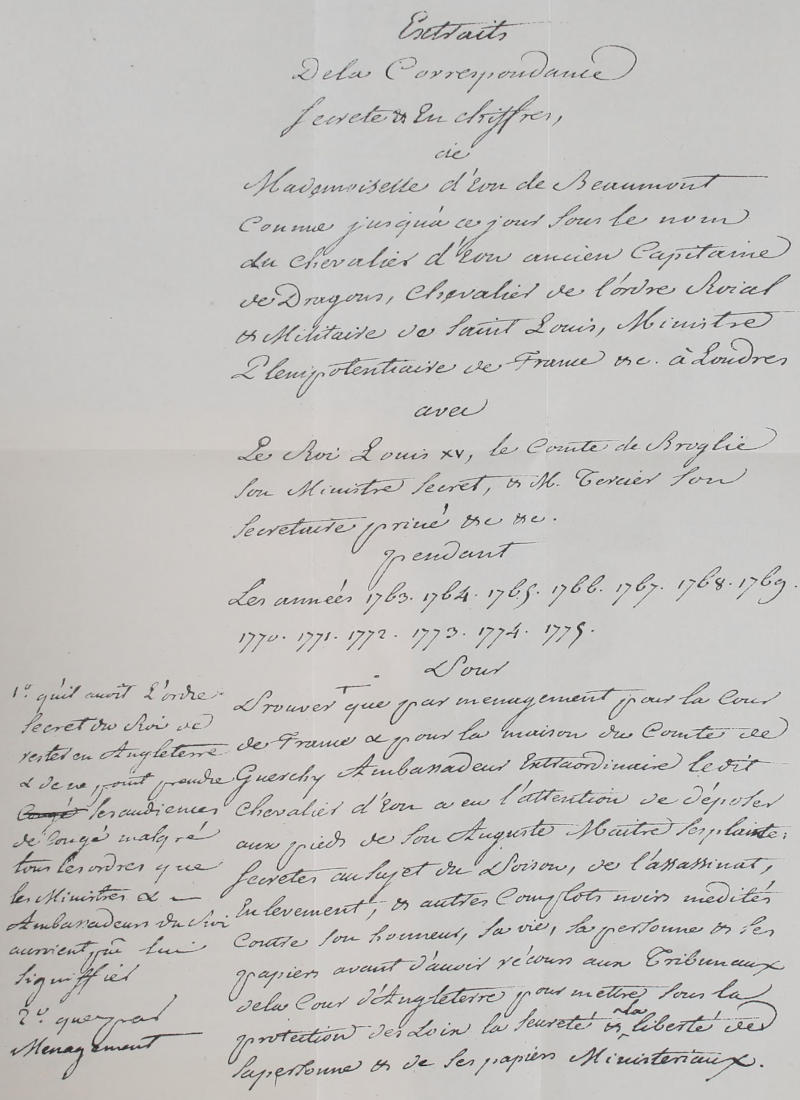 Extraits
De la Correspondance
Secrete & En chiffres,
de
Mademoiselle d'Eon de Beaumont
Connue jusqu'à ce jour sous le nom
du Chevalier d'Eon ancien Capitaine
de Dragons, Chevalier de l'ordre Roial
& Militaire de Saint Louis, Ministre
Plenipotentiaire de France &c. à Londres
avec
Le Roi Louis XV, le Comte de Broglie
Son Ministre Secret, & M. Tercier Son
Secretaire privé &c &c.
pendant
Les années 1763. 1764. 1765. 1766. 1767. 1768. 1769.
1770. 1771. 1772. 1773. 1774. 1775.
Pour
Prouver que par menagement pour la Cour
de France & pour la maison du Comte de
Guerchy Ambassadeur Extraordinaire le dit
Chevalier d'Eon a eu l'attention de déposer
aux pieds de Son Auguste Maitre ses plaintes
Secretes au Sujet du Poison, de l'assassinat,
Enlevement, & autres Complots noirs medités
Contre Son honneur, Sa vie, Sa personne & Ses
papiers avant d'avoir récours aux Tribunaux
de la Cour d'Angleterre pour mettre Sous la
protection des Loix la Seureté & la liberté de
Sa personne & de Ses papiers Ministeriaux.
1.º qu'il avoit L'ordre
Secret du Roi de
rester en Angleterre
& de ne point prendre
Congé les audiences
de Congé malgré
tous les ordres que
les Ministres &
Ambassadeurs du Roi
auroient pû lui
Signiffier
2.º que par
Menagement